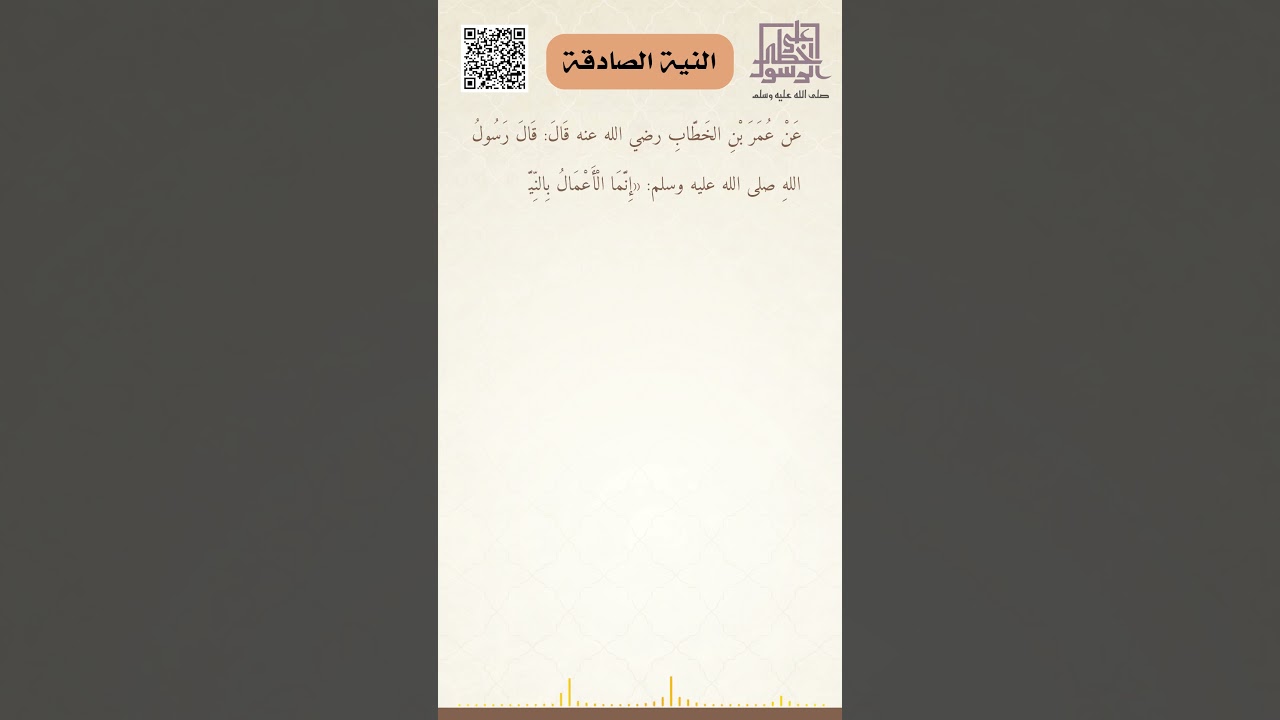 على خطى الرسول
صلى الله عليه وسلم
النية الصادقة
عَنْ عُمَرَ بْنِ الخَطَّابِ رضي الله عنه قَالَ: قَالَ رَسُولُ
اللهِ صلى الله عليه وسلم: «إِنَّمَا الْأَعْمَالُ بِالنِّيَّ